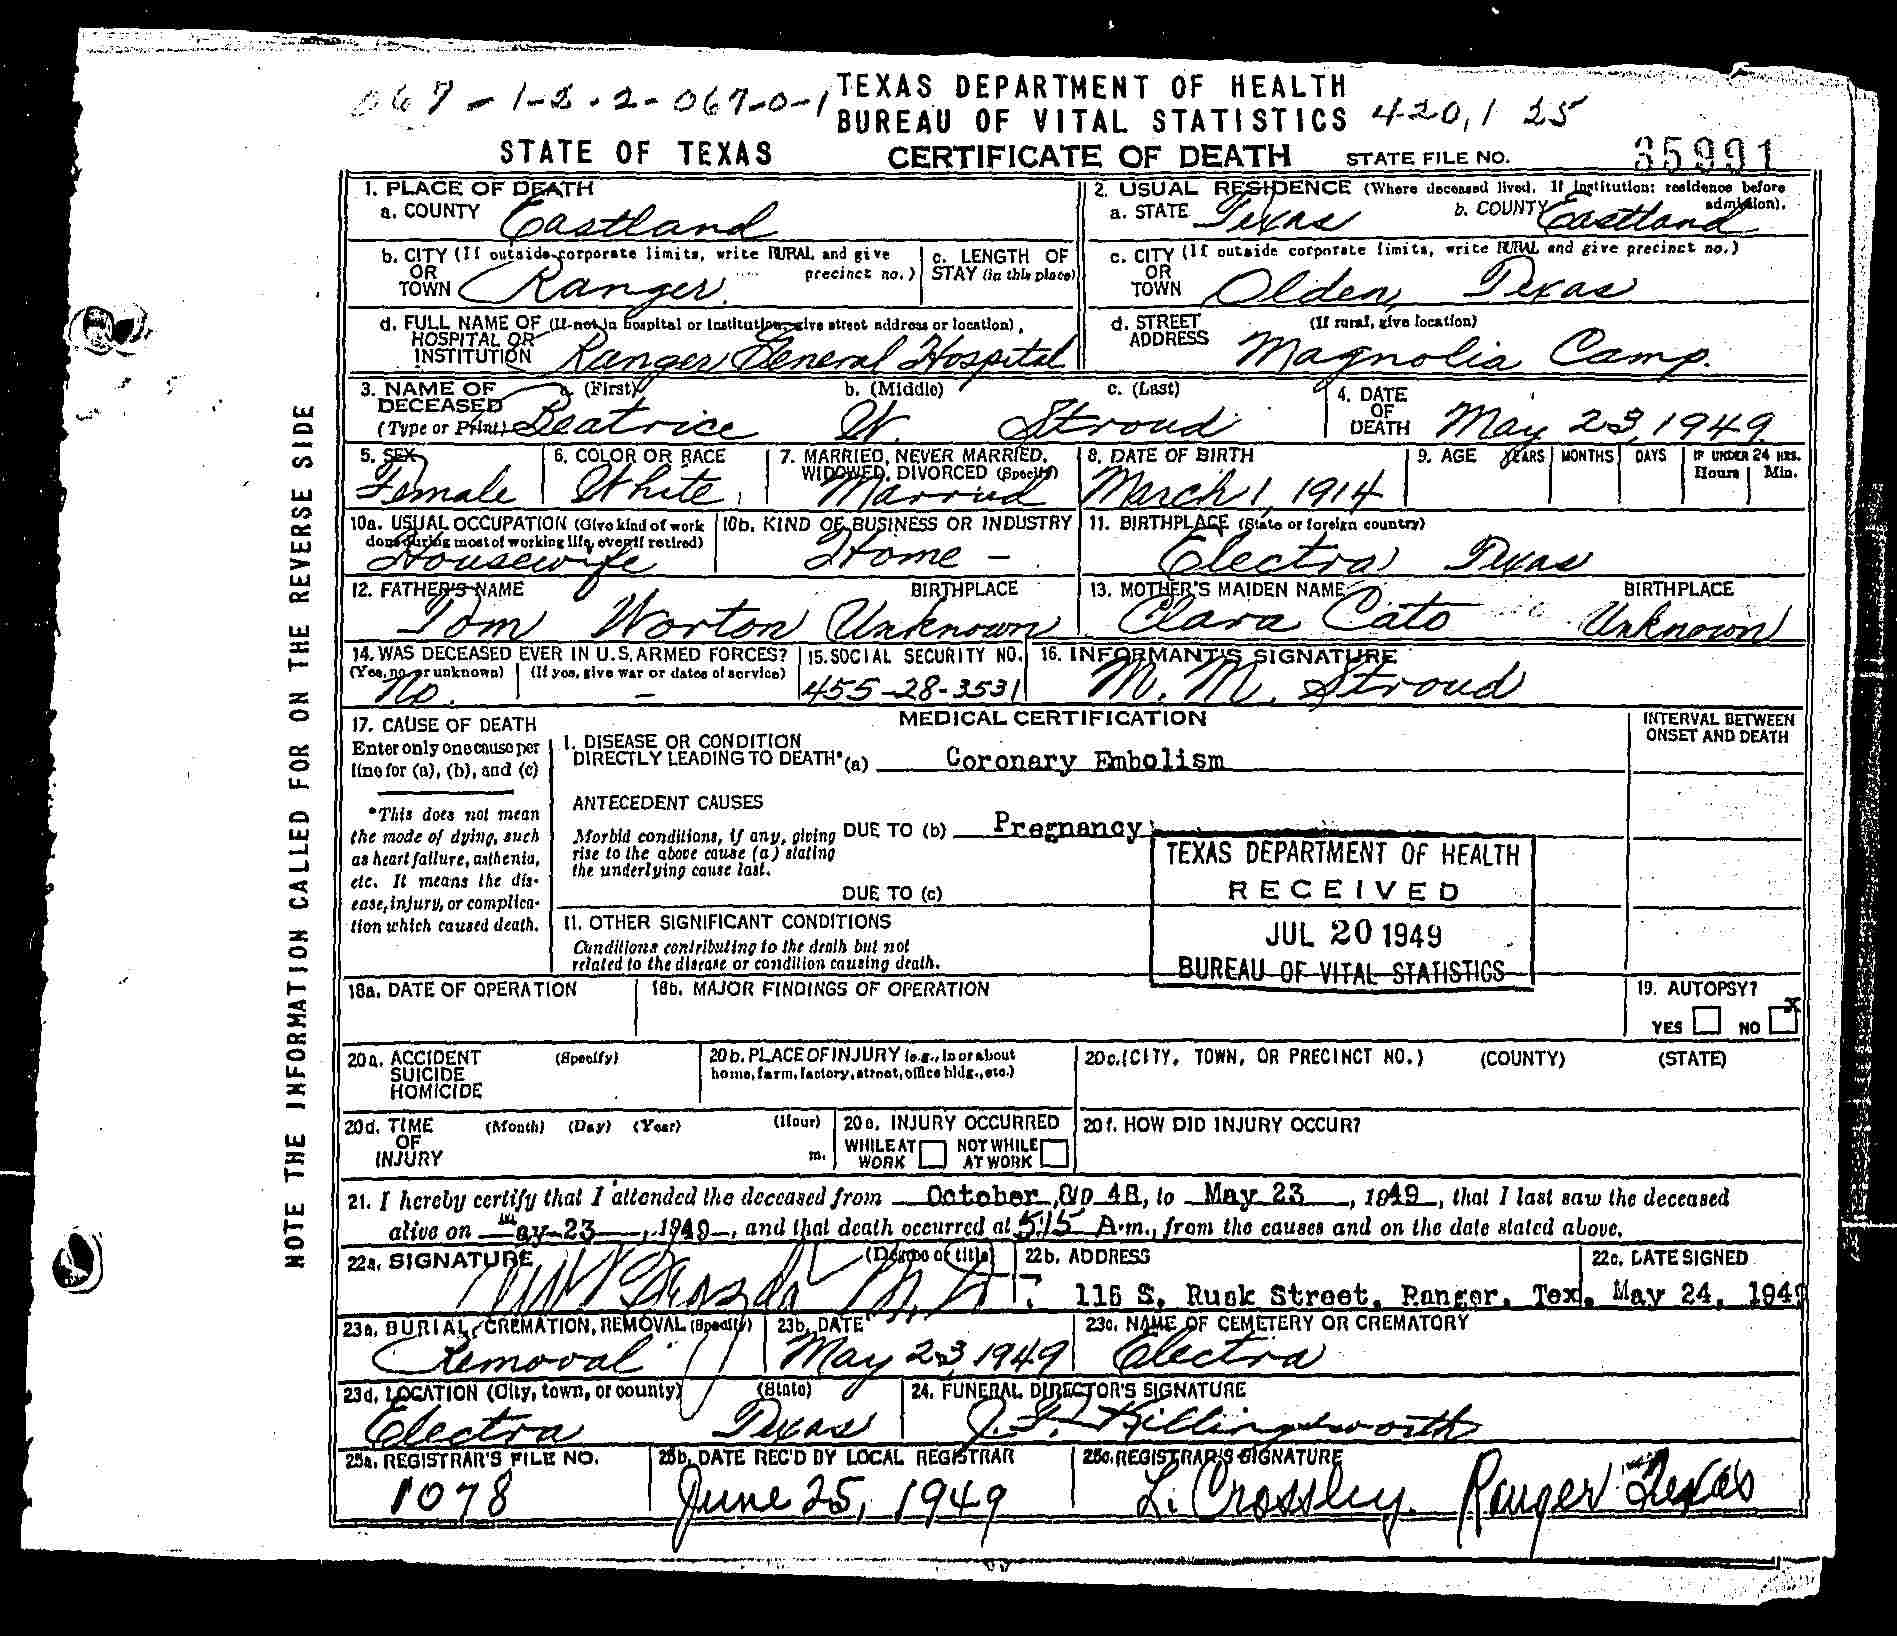 067-1-2-2-067-0-1 TEXAS DEPARTMENT OF HEALTH
BUREAU OF VITAL STATISTICS 420.1 25
STATE OF TEXAS CERTIFICATE OF DEATH STATE FILE NO. 35991
1. PLACE OF DEATH
a. COUNTY Eastland
2. USUAL RESIDENCE (Where deceased lived. If institution: residence before admission).
a. STATE Texas b. COUNTY Eastland
b. CITY (If outside corporate limits, write RURAL and give precinct no.)
OR
TOWN Ranger
c. LENGTH OF
STAY (in this place)
c. CITY (If outside corporate limits, write RURAL and give precinct no.)
OR
TOWN Olden, Texas
d. FULL NAME OF (If not in hospital or institution, give street address or location)
HOSPITAL OR
INSTITUTION Ranger General Hospital
d. STREET (If rural, give location)
ADDRESS Magnolia Camp.
3. NAME OF DECEASED (Type or Print) a. (First) b. (Middle) c. (Last)
Beatrice W. Stroud
4. DATE OF DEATH May 23, 1949
5. SEX
Female
6. COLOR OR RACE
White
7. MARRIED, NEVER MARRIED, WIDOWED, DIVORCED (Specify)
Married
8. DATE OF BIRTH
March 1, 1914
9. AGE YEARS MONTHS DAYS IF UNDER 24 HRS. Hours Min.
10a. USUAL OCCUPATION (Give kind of work done during most of working life, even if retired)
Housewife
10b. KIND OF BUSINESS OR INDUSTRY
Home -
11. BIRTHPLACE (State or foreign country)
Electra Texas
12. FATHER'S NAME BIRTHPLACE
Tom Worton Unknown
13. MOTHER'S MAIDEN NAME BIRTHPLACE
Clara Cato Unknown
14. WAS DECEASED EVER IN U.S. ARMED FORCES?
(Yes, no, or unknown) (If yes, give war or dates of service)
No. -
15. SOCIAL SECURITY NO.
455-28-3531
16. INFORMANT'S SIGNATURE
M. M. Stroud
17. CAUSE OF DEATH
Enter only one cause per
line for (a), (b), and (c)
*This does not mean
the mode of dying, such
as heart failure, asthenia,
etc. It means the dis-
ease, injury, or complica-
tion which caused death.
MEDICAL CERTIFICATION
INTERVAL BETWEEN
ONSET AND DEATH
I. DISEASE OR CONDITION
DIRECTLY LEADING TO DEATH* (a) Coronary Embolism
ANTECEDENT CAUSES
Morbid conditions, if any, giving
rise to the above cause (a) stating
the underlying cause last.
DUE TO (b) Pregnancy
DUE TO (c)
II. OTHER SIGNIFICANT CONDITIONS
Conditions contributing to the death but not
related to the disease or condition causing death.
TEXAS DEPARTMENT OF HEALTH
RECEIVED
JUL 20 1949
BUREAU OF VITAL STATISTICS
18a. DATE OF OPERATION
18b. MAJOR FINDINGS OF OPERATION
19. AUTOPSY?
YES NO X
20a. ACCIDENT (Specify)
SUICIDE
HOMICIDE
20b. PLACE OF INJURY (e.g., in or about
home, farm, factory, street, office bldg., etc.)
20c. (CITY, TOWN, OR PRECINCT NO.) (COUNTY) (STATE)
20d. TIME (Month) (Day) (Year) (Hour)
OF
INJURY m.
20e. INJURY OCCURRED
WHILE AT WORK NOT WHILE AT WORK
20f. HOW DID INJURY OCCUR?
21. I hereby certify that I attended the deceased from October, 48, to May 23, 1949, that I last saw the deceased
alive on May 23, 1949, and that death occurred at 5:15 A.m., from the causes and on the date stated above.
22a. SIGNATURE (Degree or title)
M.D.
22b. ADDRESS
115 S. Rusk Street, Ranger, Tex.
22c. DATE SIGNED
May 24, 1949
23a. BURIAL, CREMATION, REMOVAL (Specify)
Removal
23b. DATE
May 23, 1949
23c. NAME OF CEMETERY OR CREMATORY
Electra
23d. LOCATION (City, town, or county) (State)
Electra Texas
24. FUNERAL DIRECTOR'S SIGNATURE
J. F. Killingsworth
25a. REGISTRAR'S FILE NO.
1078
25b. DATE REC'D BY LOCAL REGISTRAR
June 25, 1949
25c. REGISTRAR'S SIGNATURE
L. Crossley. Ranger Texas
NOTE THE INFORMATION CALLED FOR ON THE REVERSE SIDE